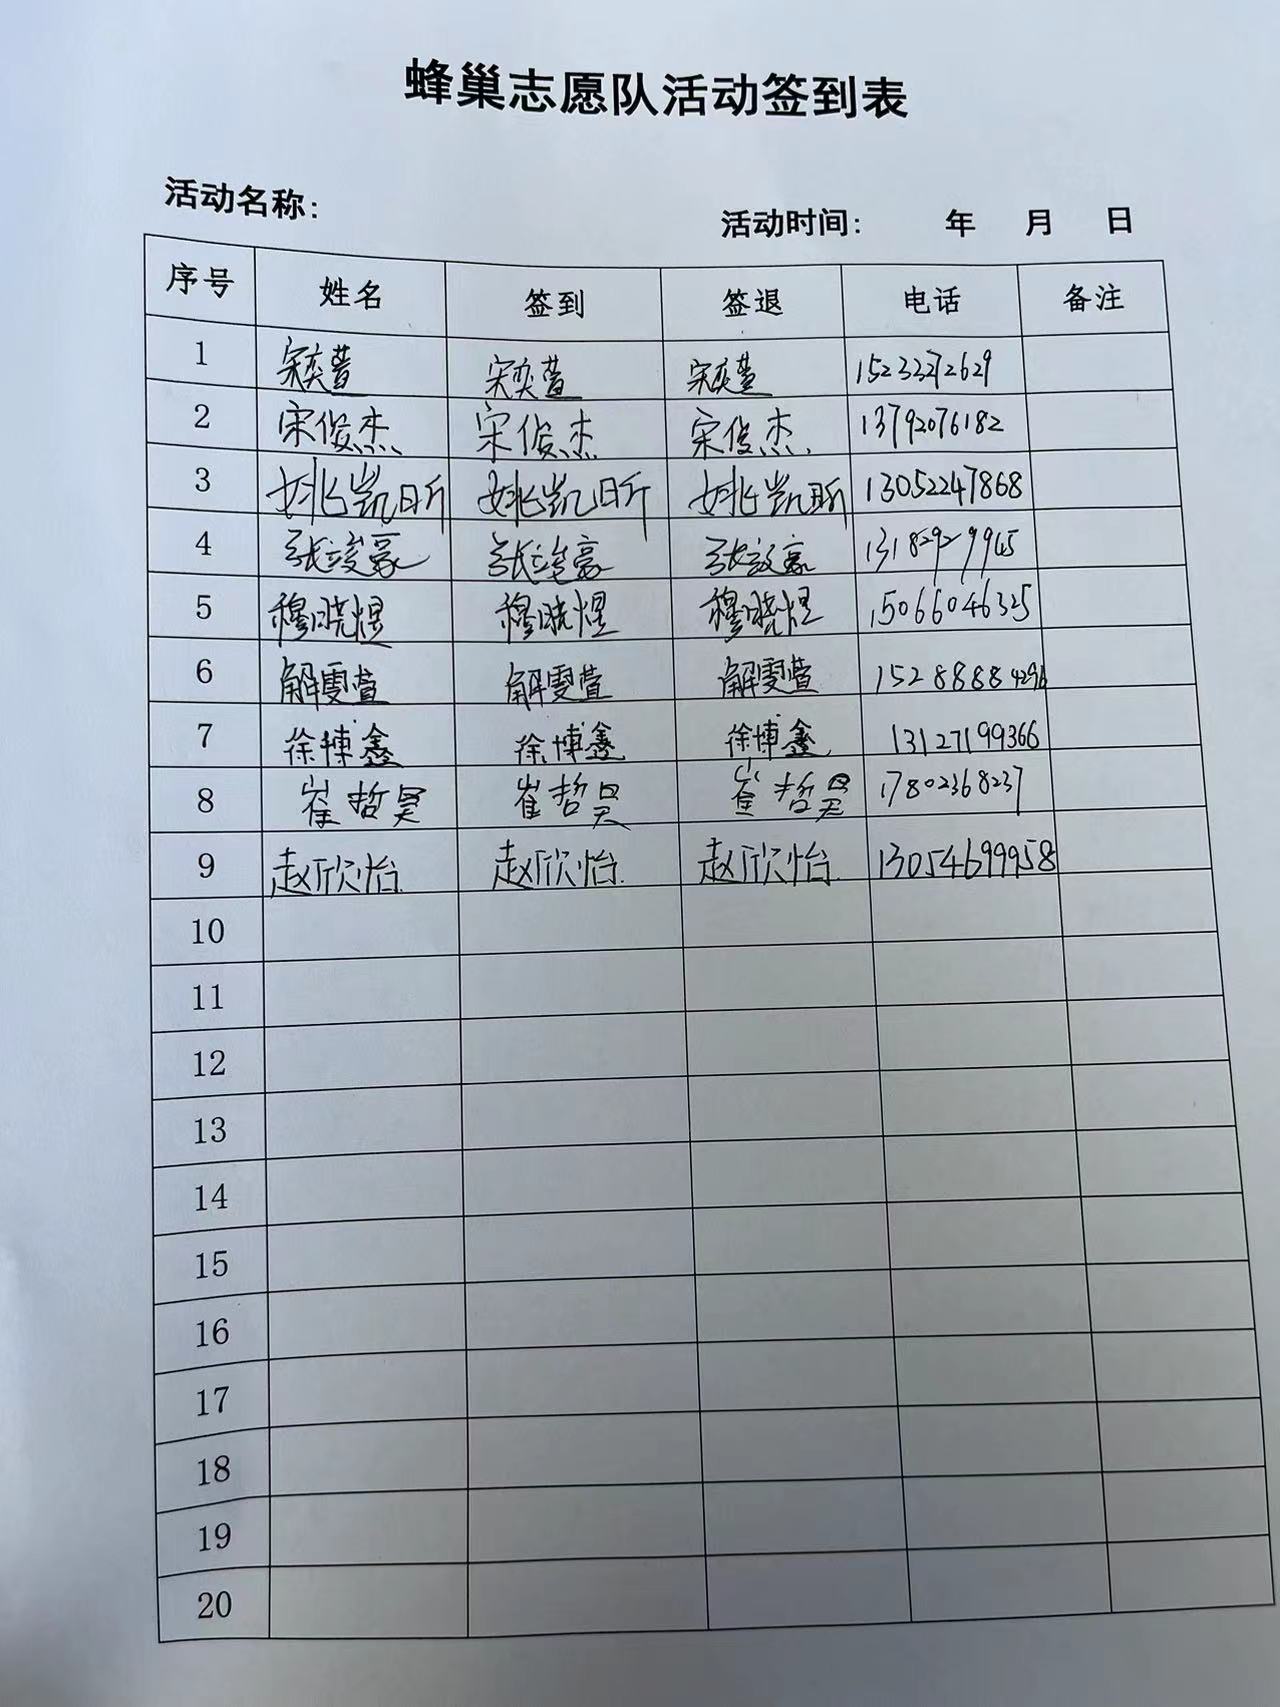 蜂巢志愿队活动签到表
活动名称:
活动时间: 年 月 日
序号 姓名 签到 签退 电话 备注
1 宋奕萱 宋奕萱 宋奕萱 15233272629
2 宋俊杰 宋俊杰 宋俊杰 13792076182
3 姚凯昕 姚凯昕 姚凯昕 13052247868
4 张竣豪 张竣豪 张竣豪
5 穆晓煜 穆晓煜 穆晓煜 15066046325
6 解雯萱 解雯萱 解雯萱 15288884296
7 徐博鑫 徐博鑫 徐博鑫 13127199366
8 崔哲昊 崔哲昊 崔哲昊 17802368237
9 赵欣怡 赵欣怡 赵欣怡 13054699958
10
11
12
13
14
15
16
17
18
19
20